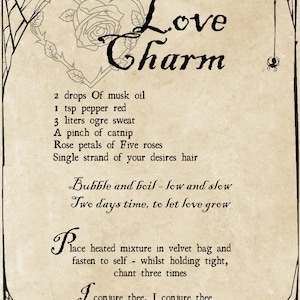 Love
Charm
2 drops Of musk oil
1 tsp pepper red
3 liters ogre sweat
A pinch of catnip
Rose petals of Five roses
Single strand of your desires hair
Bubble and boil - low and slow
Two days time, to let love grow
Place heated mixture in velvet bag and
fasten to self - whilst holding tight,
chant three times
I conjure thee, I conjure thee